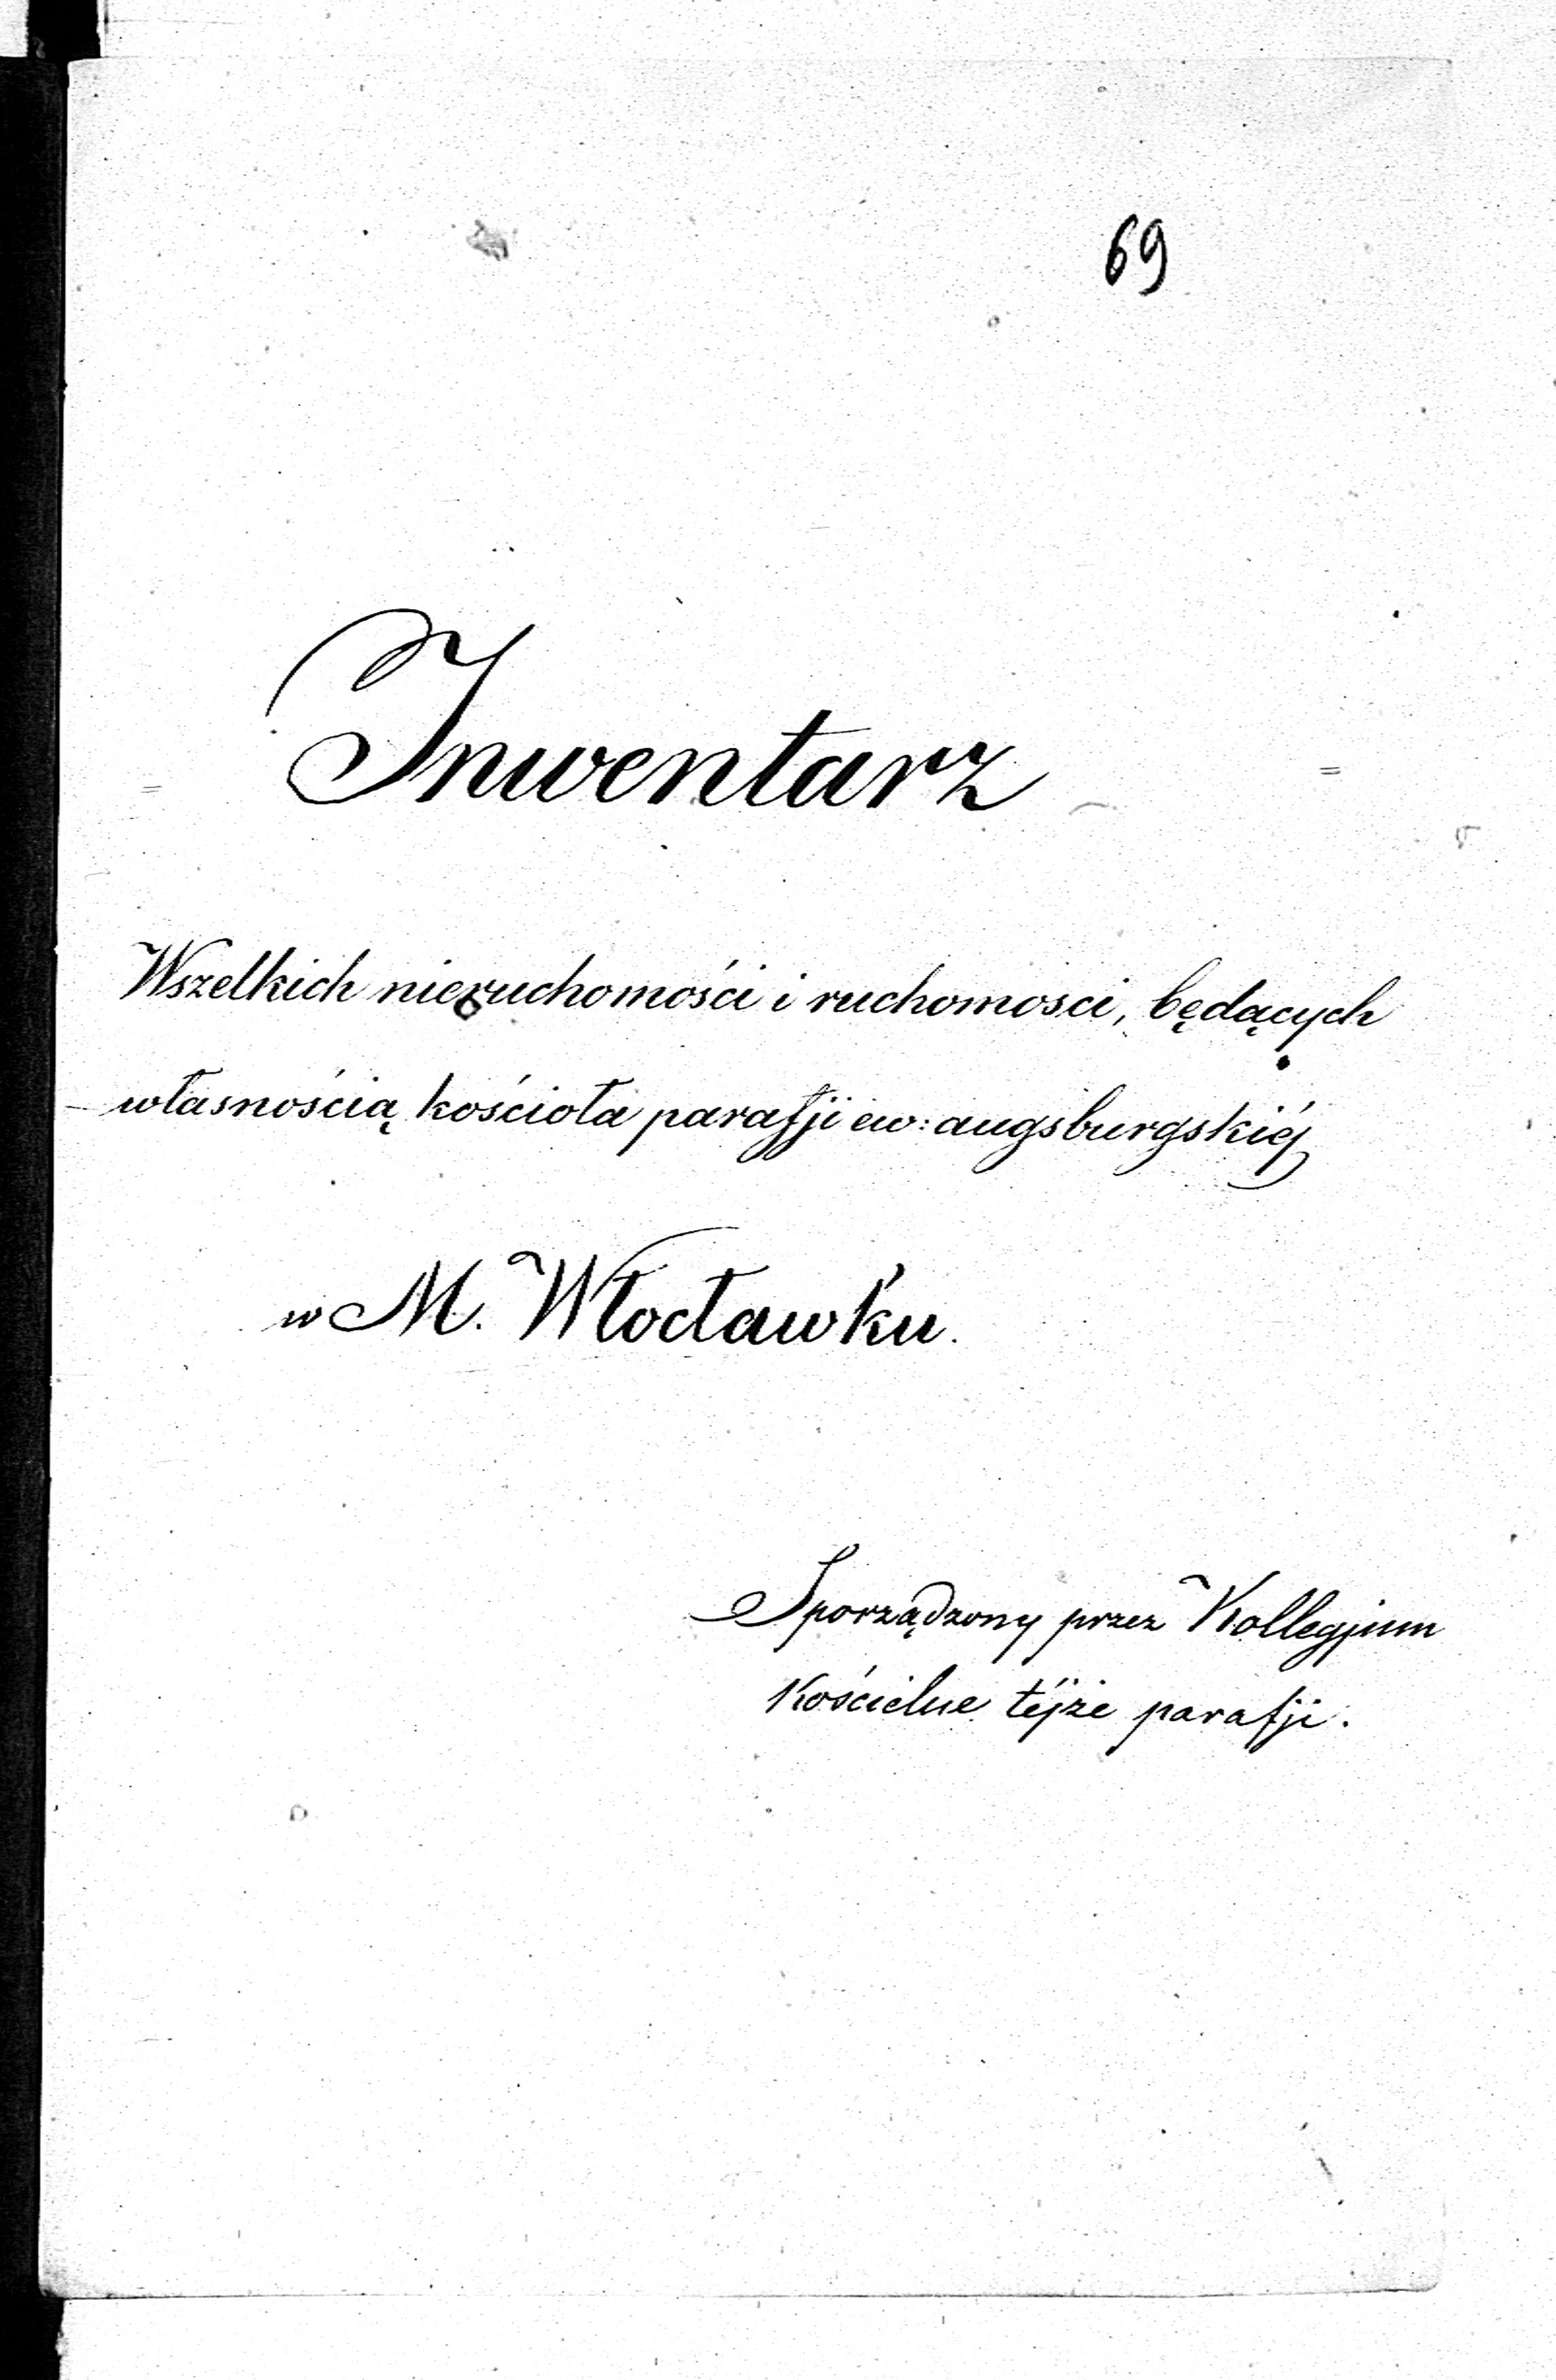 69
Inwentarz
Wszelkich nieruchomości i ruchomosci, będących
własnością kościoła parafji ew: augsburgskiéj
w M. Włocławku.
Sporządzony przez Kollegjum
Kościelne téjże parafji.